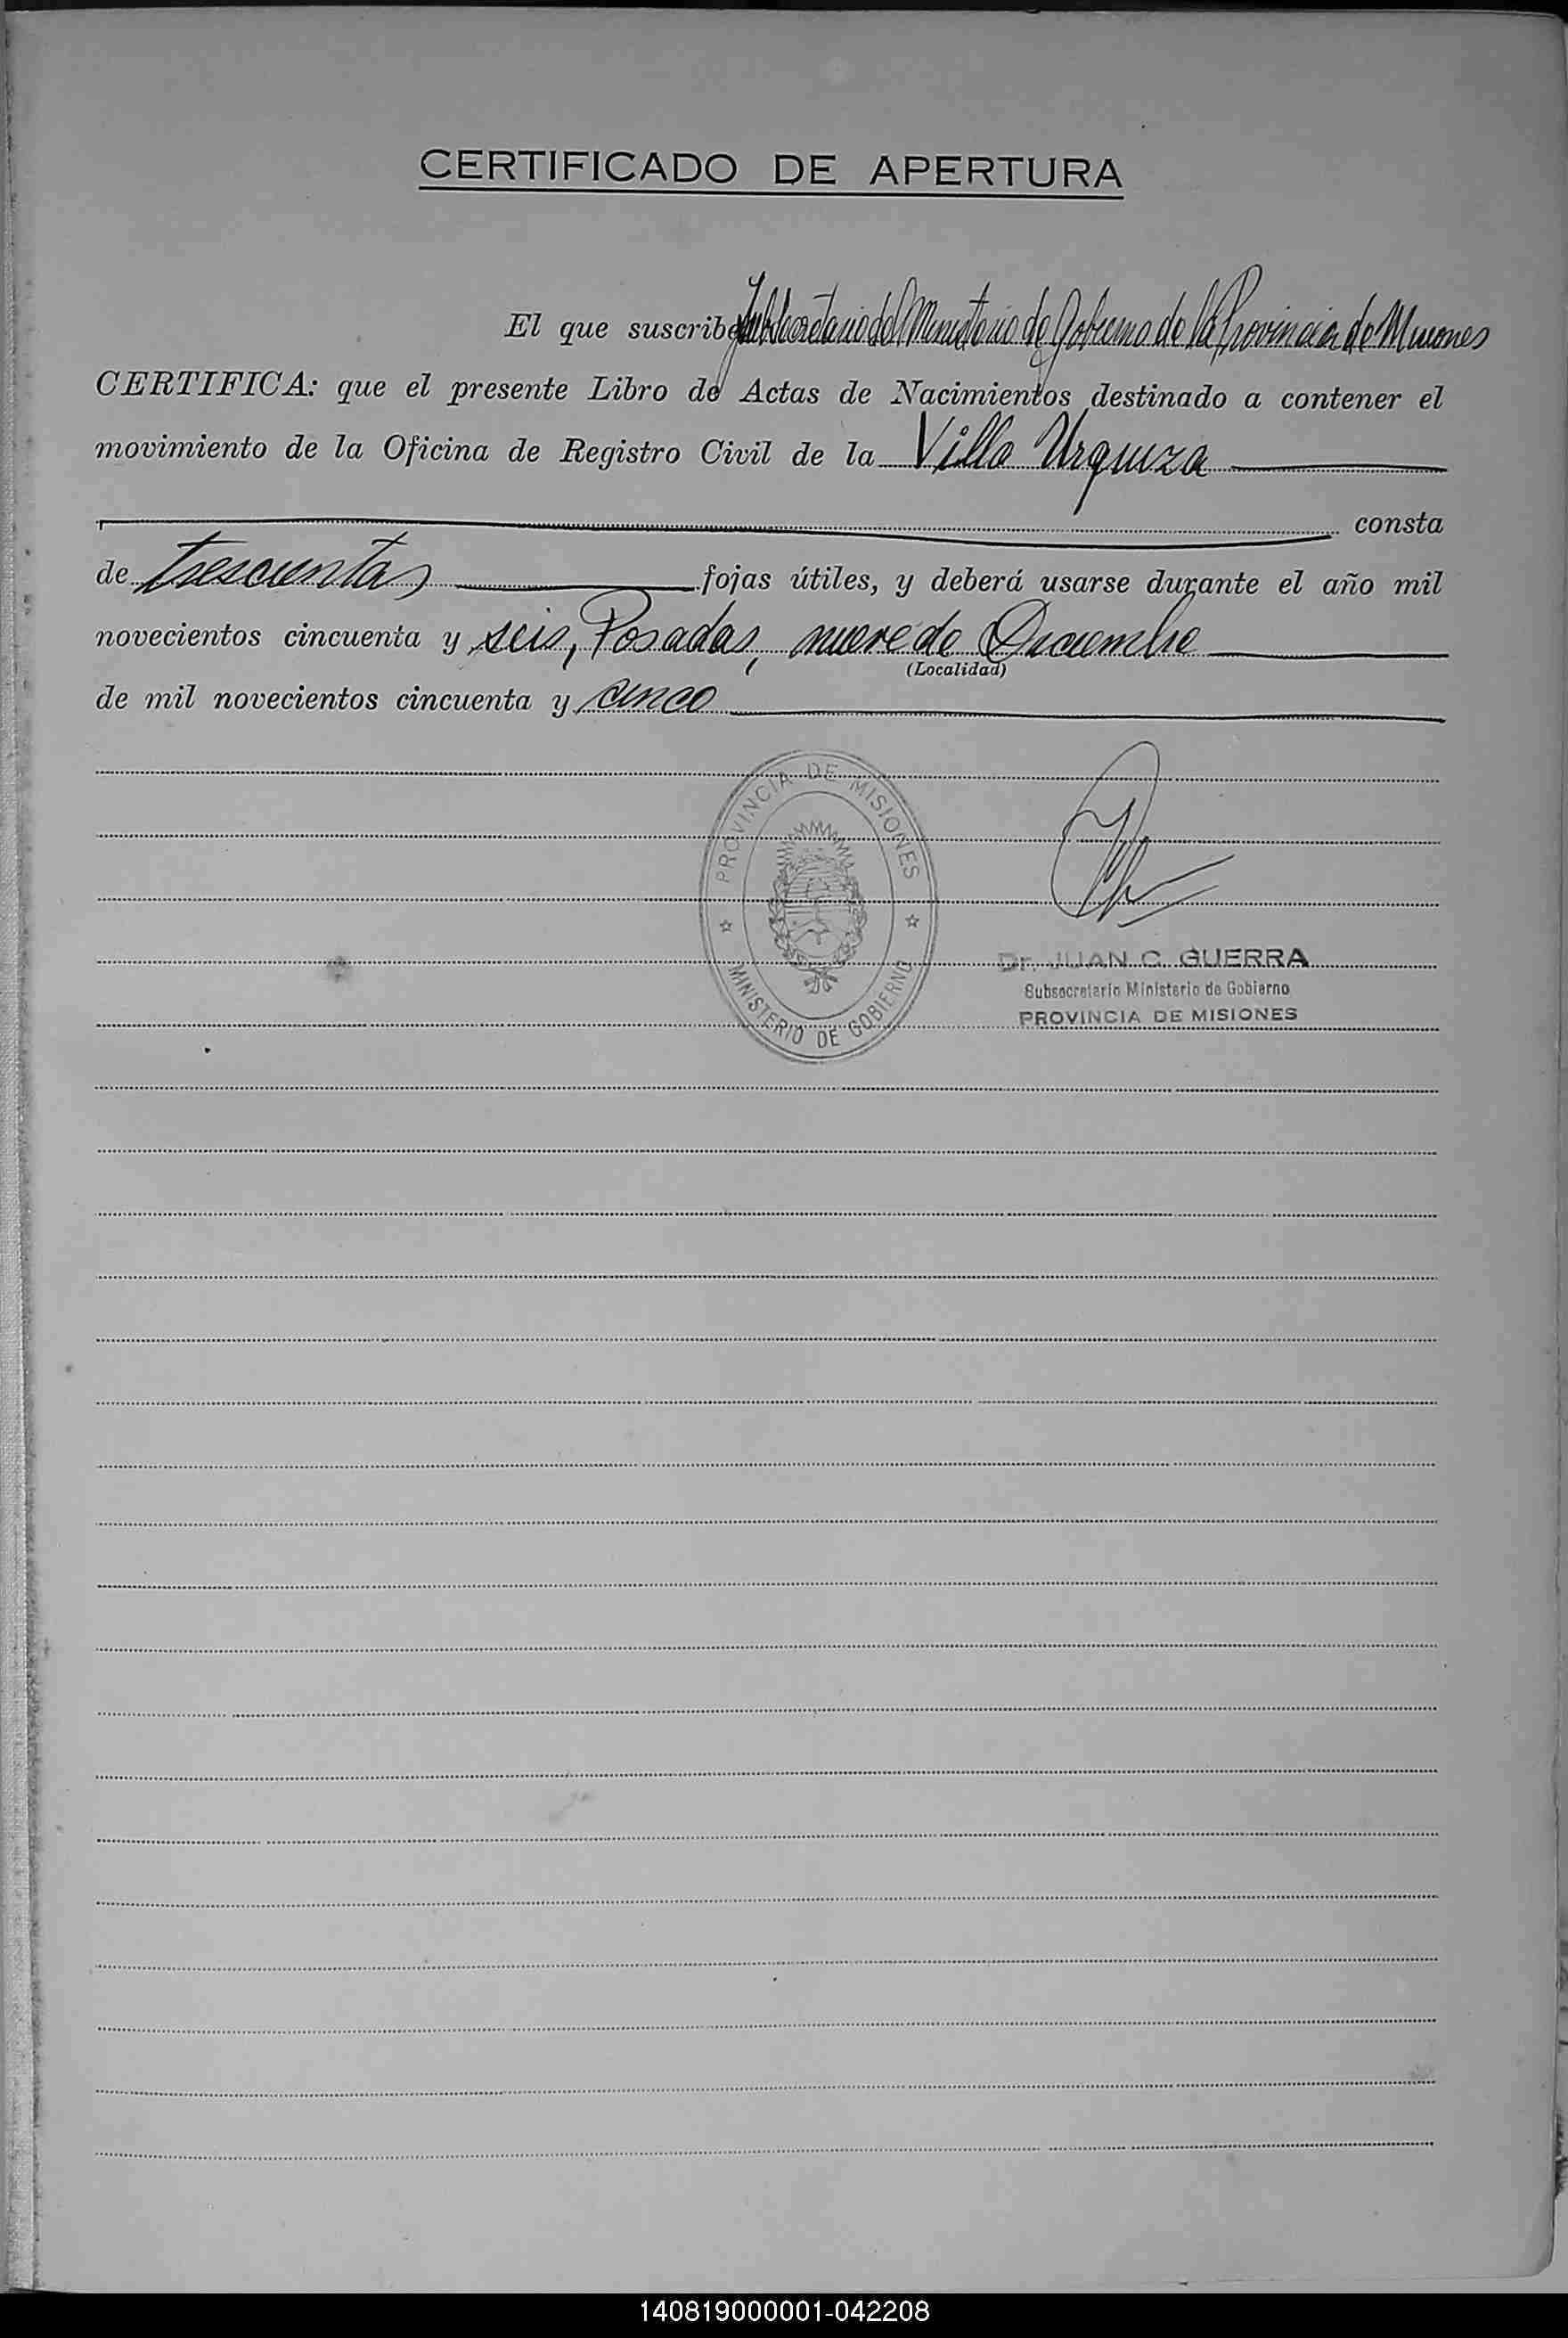 CERTIFICADO DE APERTURA
El que suscribe Subsecretario del Ministerio de Gobierno de la Provincia de Misiones
CERTIFICA: que el presente Libro de Actas de Nacimientos destinado a contener el
movimiento de la Oficina de Registro Civil de la Villa Urquiza
consta
de trescientas fojas útiles, y deberá usarse durante el año mil
novecientos cincuenta y seis, Posadas, nueve de Diciembre
(Localidad)
de mil novecientos cincuenta y cinco
PROVINCIA DE MISIONES
MINISTERIO DE GOBIERNO
Dr. JUAN C. GUERRA
Subsecretario Ministerio de Gobierno
PROVINCIA DE MISIONES
140819000001-042208